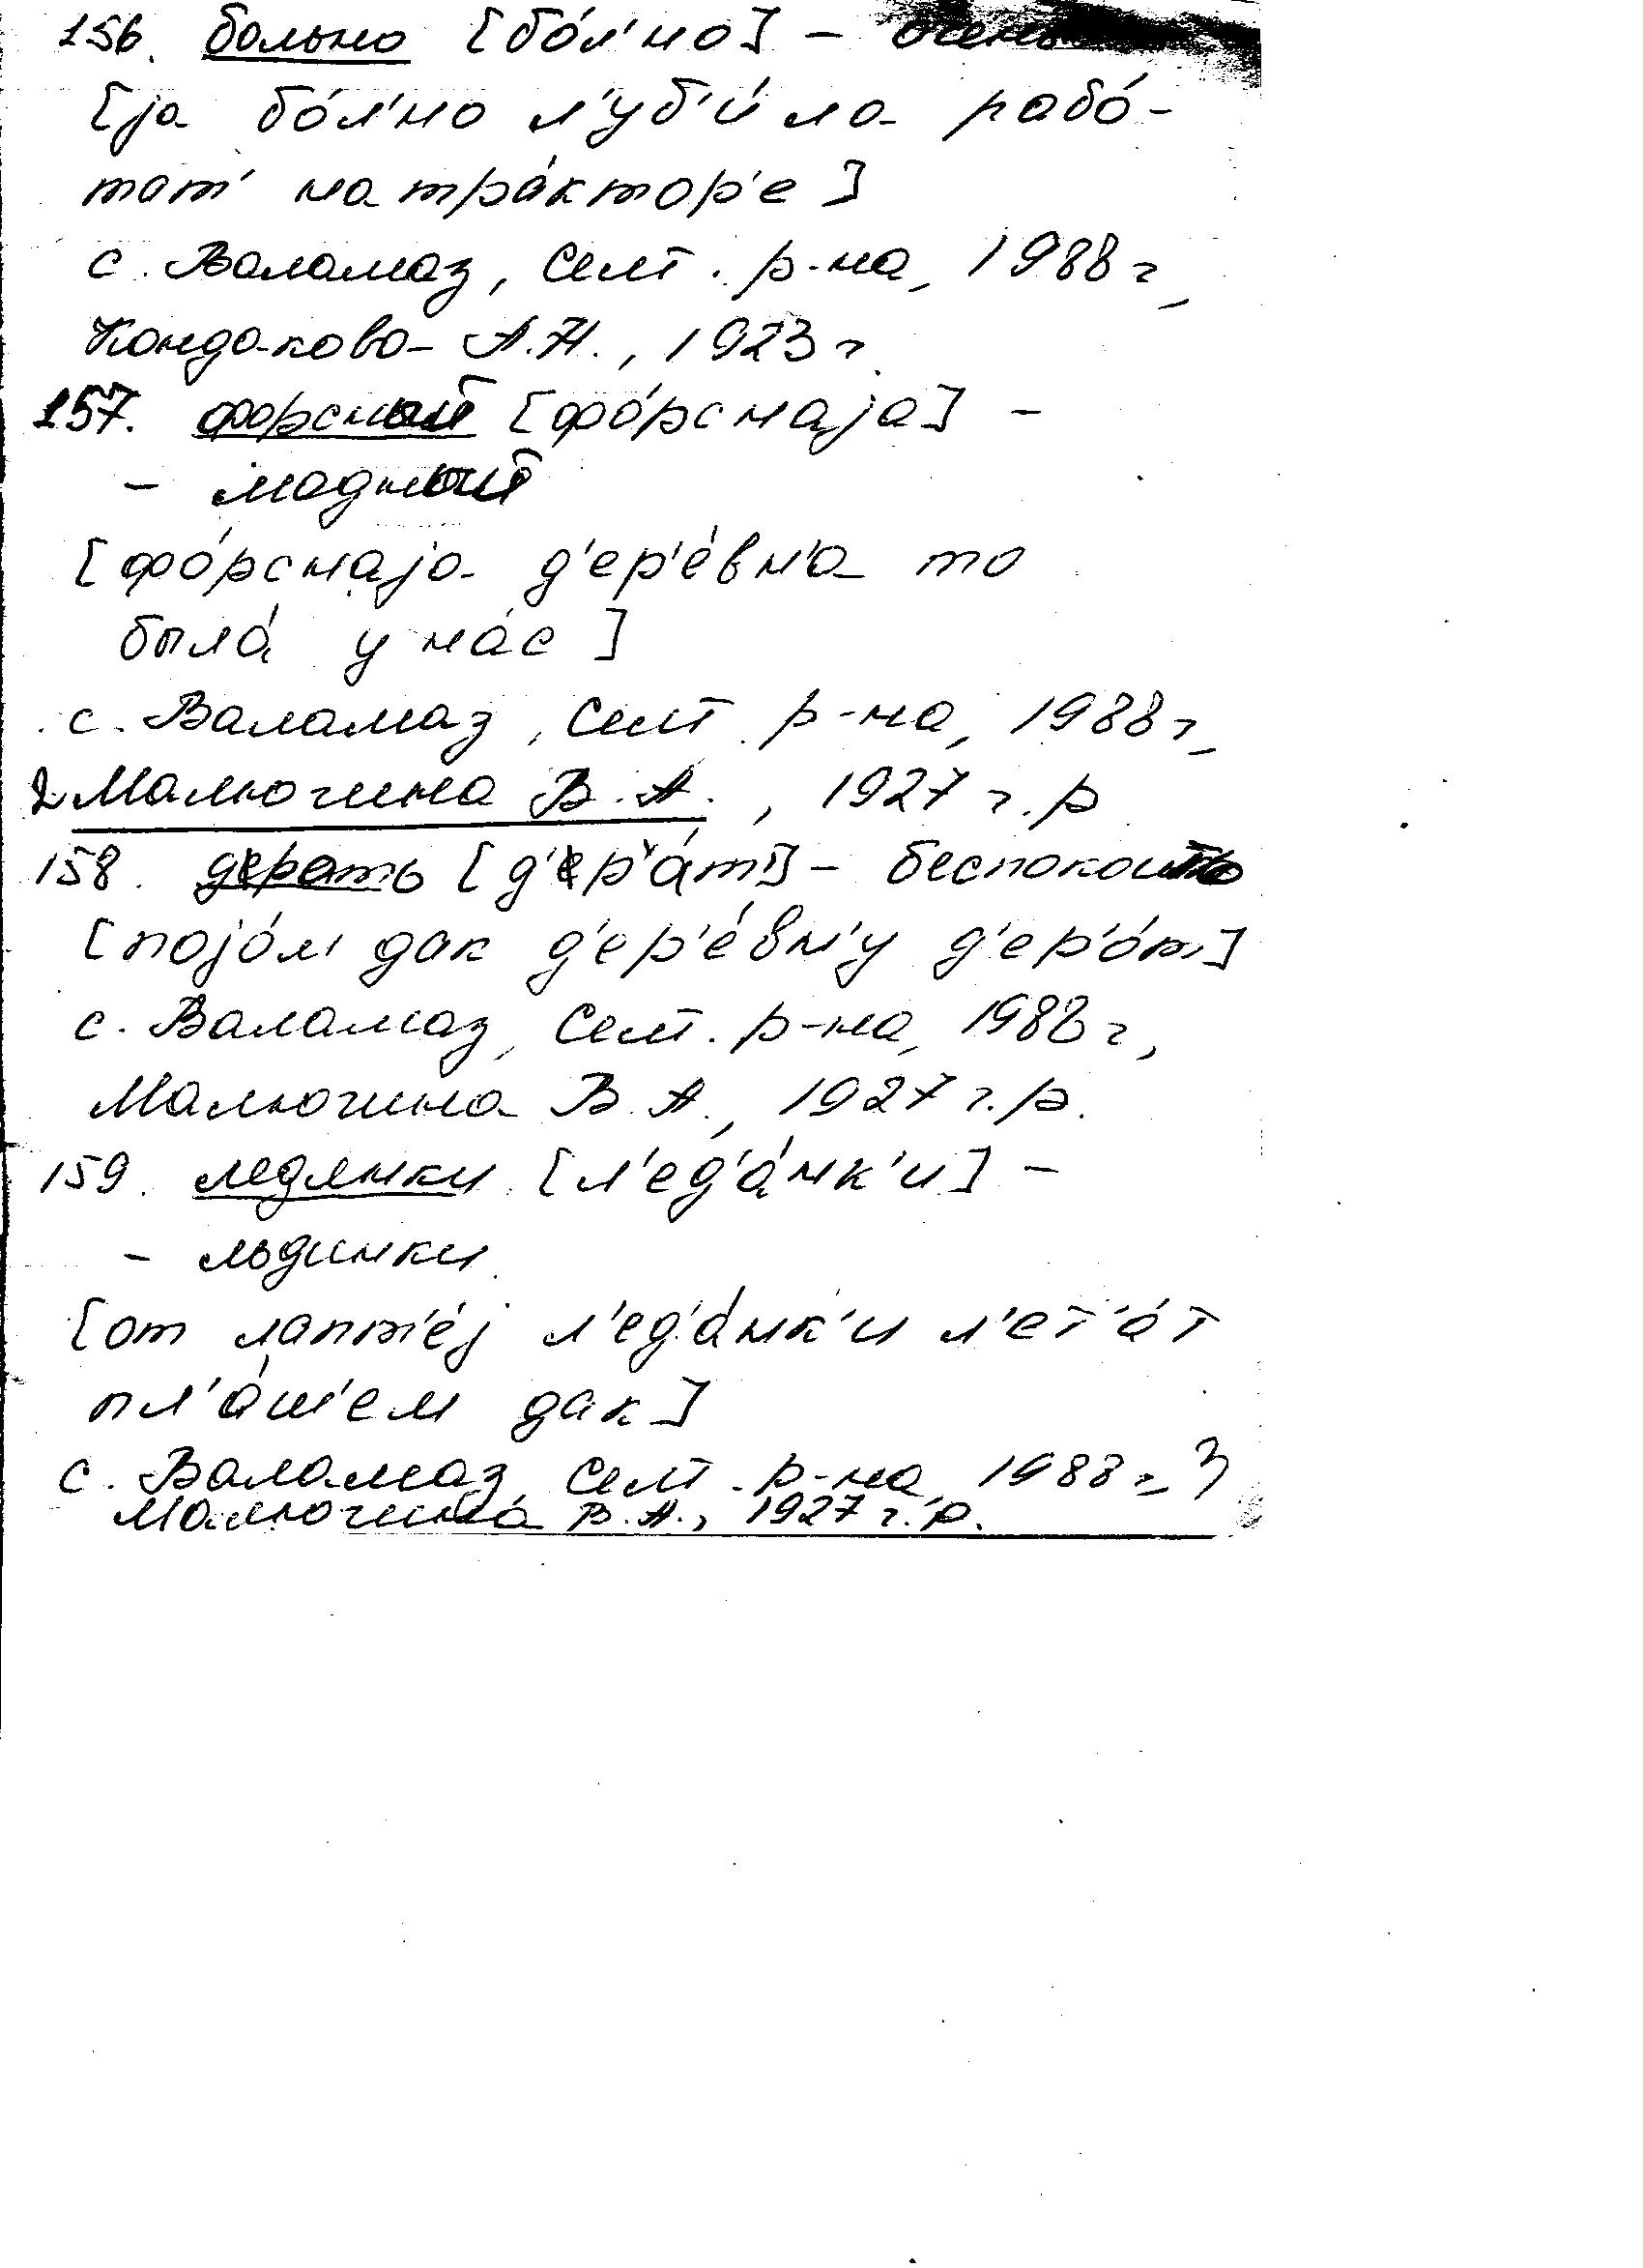 156. больно [бо́л'но] – очень
[jа бо́л'но л'уб'и́ла рабо́-
тат' на тра́ктор'е]
с. Валамаз, Селт. р-на, 1988 г.,
Кондакова А.Н., 1923 г.
157. форсный [фо́рснаjа] –
– модный
[фо́рснаjа д'ер'е́вн'а то
была́ у на́с]
с. Валамаз, Селт. р-на, 1988 г.,
Малючина В.А., 1927 г.р
158. дерать [д'ер'а́т'] – беспокоить
[поjо́м дак д'ер'е́вн'у д'ер'о́м]
с. Валамаз, Селт. р-на, 1988 г.,
Малючина В.А., 1927 г.р.
159. ледянки [л'ед'а́нк'и] –
– льдинки
[от лапт'е́j л'ед'а́нк'и л'ет'а́т
пл'а́ш'ем дак]
с. Валамаз, Селт. р-на, 1988 г., 3
Малючина В.А., 1927 г.р.